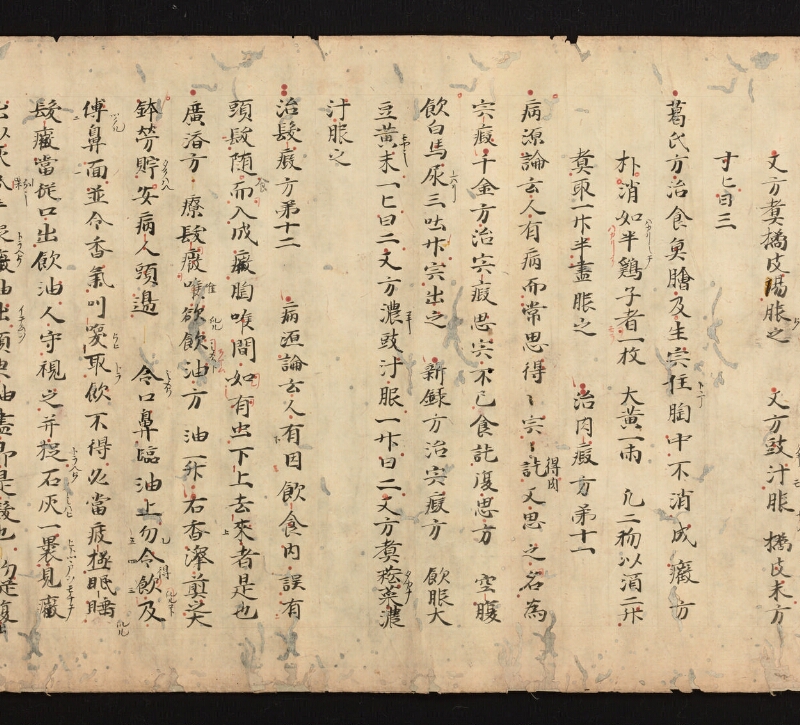 又方煑橘皮湯服之 又方豉汁服 橘皮末方
寸匕日三
葛氏方治食魚膾及生宍住胸中不消成癥方
朴消如半鷄子者一枚 大黄一兩 凡二物以酒二升
煑取一升半盡服之 治肉瘕方苐十一
病源論云人有病而常思得〻宍〻訖又思之名爲
宍瘕 千金方治宍瘕思宍不已食訖復思方 空腹
飲白馬尿三吐升宍出之 新録方治宍瘕方 飲服大
豆黄末一匕日二又方濃豉汁服一升日二又方煑菘菜濃
汁服之
治髮瘕方苐十二 病源論云人有因飲食内誤有
頭髮随而入成癥胸喉間如有虫下上去來者是也
廣濟方 療髮癥唯欲飲油方 油一升右香澤煎
鉢勞貯安病人頭邊 令口鼻臨油上勿令飲及
傅鼻面並令香氣叫喚取飲不得必當疲極眠睡
髮癥當從口出飲油人守視之并捉石灰一褁見癥